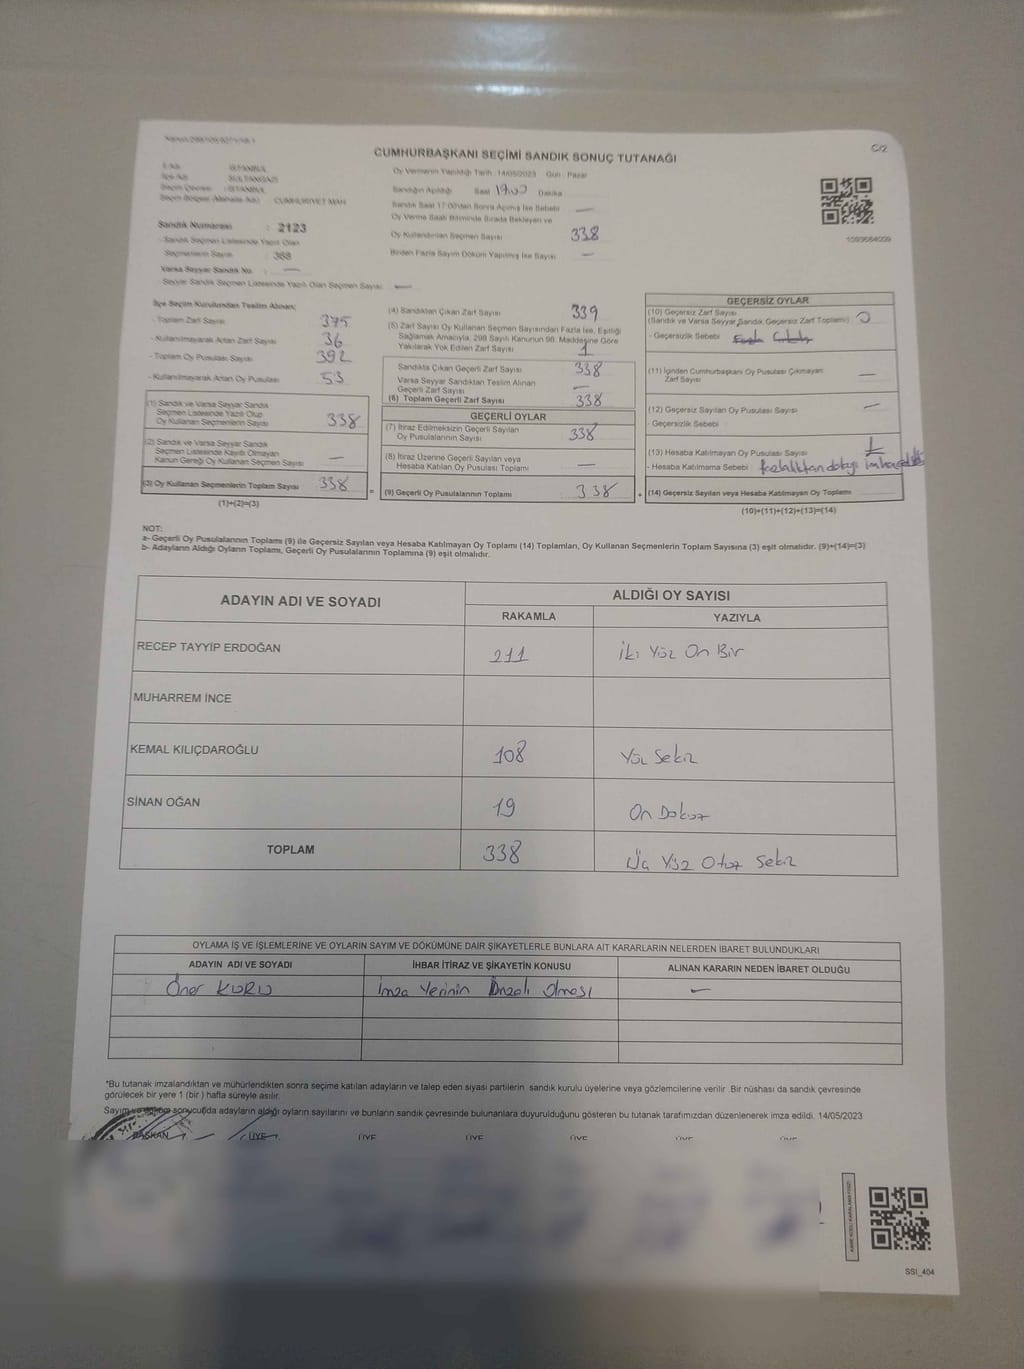 C/2
CUMHURBAŞKANI SEÇİMİ SANDIK SONUÇ TUTANAĞI
İSTANBUL
SULTANGAZİ
İSTANBUL
CUMHURİYET MAH.
Sandık Numarası : 2123
- Sandık Seçmen Listesinde Yazılı Olan
Seçmenlerin Sayısı : 388
Varsa Seyyar Sandık No : —
- Seyyar Sandık Seçmen Listesinde Yazılı Olan Seçmen Sayısı : —
Oy Vermenin Yapıldığı Tarih : 14/05/2023 Gün : Pazar
Sandığın Açıldığı Saat 19:00 Dakika
Sandık Saat 17:00'dan Sonra Açılmış İse Sebebi —
Oy Verme Saati Bitiminde Sırada Bekleyen ve
Oy Kullandırılan Seçmen Sayısı 338
Birden Fazla Sayım Döküm Yapılmış İse Sayısı —
1093684009
İlçe Seçim Kurulundan Teslim Alınan;
- Toplam Zarf Sayısı 375
- Kullanılmayarak Artan Zarf Sayısı 36
- Toplam Oy Pusulası Sayısı 392
- Kullanılmayarak Artan Oy Pusulası 53
(1) Sandık ve Varsa Seyyar Sandık
Seçmen Listesinde Yazılı Olup
Oy Kullanan Seçmenlerin Sayısı 338
(2) Sandık ve Varsa Seyyar Sandık
Seçmen Listesinde Kayıtlı Olmayan
Kanun Gereği Oy Kullanan Seçmen Sayısı —
(3) Oy Kullanan Seçmenlerin Toplam Sayısı 338 =
(1)+(2)=(3)
(4) Sandıktan Çıkan Zarf Sayısı 339
(5) Zarf Sayısı Oy Kullanan Seçmen Sayısından Fazla İse, Eşitliği
Sağlamak Amacıyla, 298 Sayılı Kanunun 98. Maddesine Göre
Yakılarak Yok Edilen Zarf Sayısı 1
Sandıkta Çıkan Geçerli Zarf Sayısı 338
Varsa Seyyar Sandıktan Teslim Alınan
Geçerli Zarf Sayısı —
(6) Toplam Geçerli Zarf Sayısı 338
GEÇERLİ OYLAR
(7) İtiraz Edilmeksizin Geçerli Sayılan
Oy Pusulalarının Sayısı 338
(8) İtiraz Üzerine Geçerli Sayılan veya
Hesaba Katılan Oy Pusulası Toplamı —
(9) Geçerli Oy Pusulalarının Toplamı 338 +
GEÇERSİZ OYLAR
(10) Geçersiz Zarf Sayısı
(Sandık ve Varsa Seyyar Sandık Geçersiz Zarf Toplamı) 0
- Geçersizlik Sebebi
(11) İçinden Cumhurbaşkanı Oy Pusulası Çıkmayan
Zarf Sayısı —
(12) Geçersiz Sayılan Oy Pusulası Sayısı —
- Geçersizlik Sebebi
(13) Hesaba Katılmayan Oy Pusulası Sayısı 1
- Hesaba Katılmama Sebebi fazlalıktan dolayı
(14) Geçersiz Sayılan veya Hesaba Katılmayan Oy Toplamı
(10)+(11)+(12)+(13)=(14)
NOT:
a- Geçerli Oy Pusulalarının Toplamı (9) ile Geçersiz Sayılan veya Hesaba Katılmayan Oy Toplamı (14) Toplamları, Oy Kullanan Seçmenlerin Toplam Sayısına (3) eşit olmalıdır. (9)+(14)=(3)
b- Adayların Aldığı Oyların Toplamı, Geçerli Oy Pusulalarının Toplamına (9) eşit olmalıdır.
ADAYIN ADI VE SOYADI
ALDIĞI OY SAYISI
RAKAMLA YAZIYLA
RECEP TAYYİP ERDOĞAN 211 İki Yüz On Bir
MUHARREM İNCE
KEMAL KILIÇDAROĞLU 108 Yüz Sekiz
SİNAN OĞAN 19 On Dokuz
TOPLAM 338 Üç Yüz Otuz Sekiz
OYLAMA İŞ VE İŞLEMLERİNE VE OYLARIN SAYIM VE DÖKÜMÜNE DAİR ŞİKAYETLERLE BUNLARA AİT KARARLARIN NELERDEN İBARET BULUNDUKLARI
ADAYIN ADI VE SOYADI İHBAR İTİRAZ VE ŞİKAYETİN KONUSU ALINAN KARARIN NEDEN İBARET OLDUĞU
Öner KURU İmza Yerinin Önzeli Olması —
*Bu tutanak imzalandıktan ve mühürlendikten sonra seçime katılan adayların ve talep eden siyasi partilerin sandık kurulu üyelerine veya gözlemcilerine verilir. Bir nüshası da sandık çevresinde
görülecek bir yere 1 (bir) hafta süreyle asılır.
Sayım ve döküm sonucunda adayların aldığı oyların sayılarını ve bunların sandık çevresinde bulunanlara duyurulduğunu gösteren bu tutanak tarafımızdan düzenlenerek imza edildi. 14/05/2023
BAŞKAN ÜYE ÜYE ÜYE ÜYE ÜYE
SSI_404